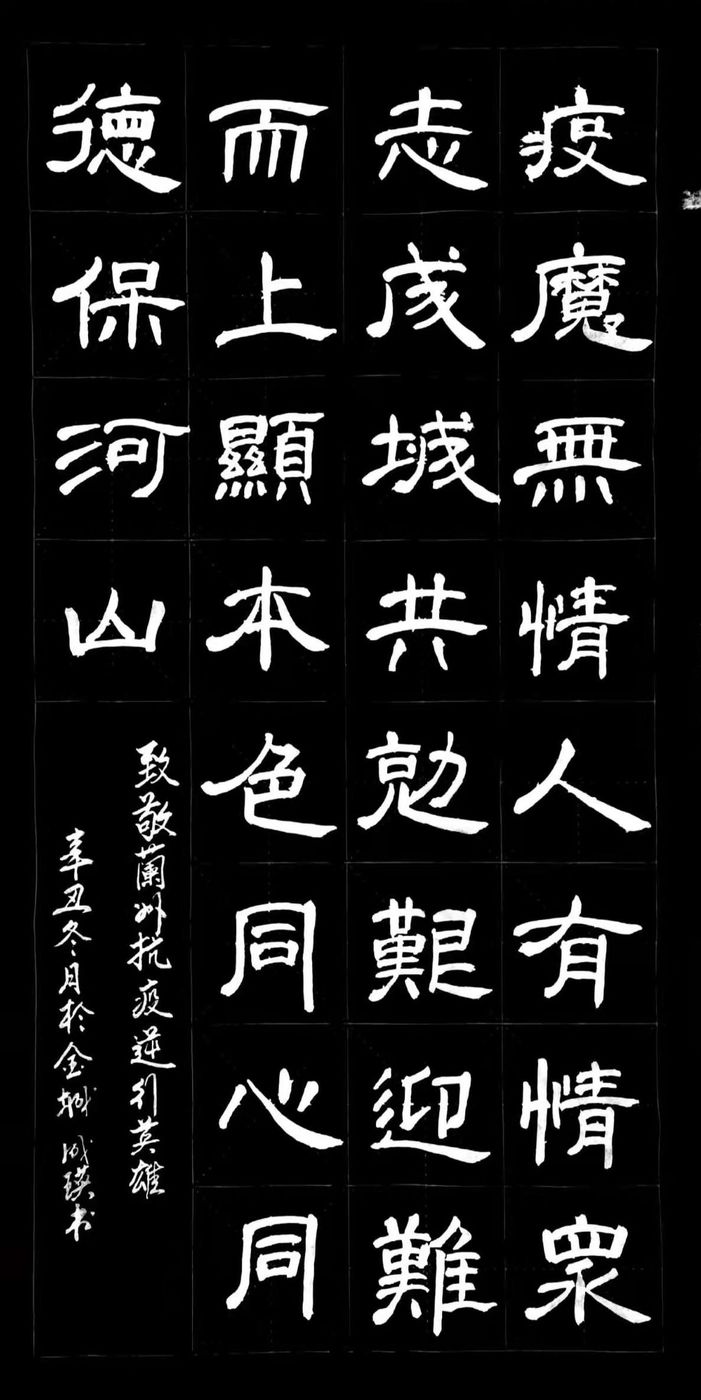 疫魔無情人有情眾
志成城共勊艱迎難
而上顯本色同心同
德保河山
致敬蘭州抗疫逆行英雄
辛丑冬月於金城 成瑛书